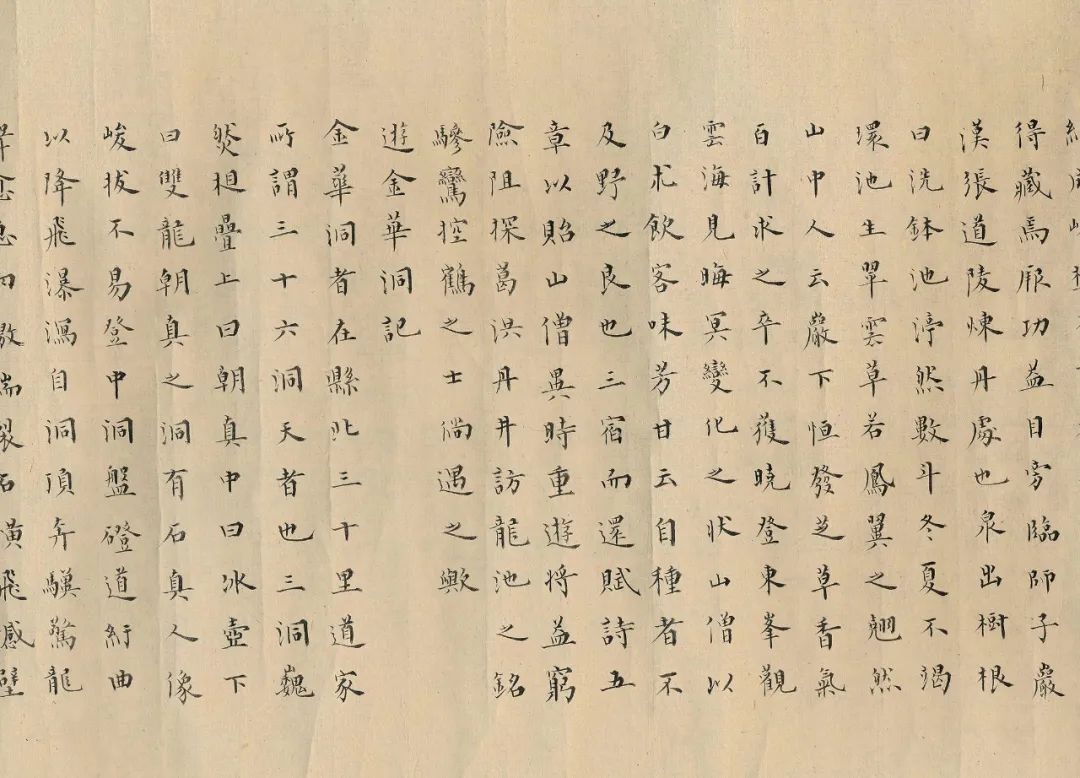 得藏焉厥功益目旁臨師子巖
漢張道陵煉丹處也泉出樹根
曰洗鉢池渟然數斗冬夏不竭
環池生翠雲草若鳳翼之翹然
山中人云巖下恒發芝草香氣
百計求之卒不獲曉登東峯觀
雲海見晦冥變化之狀山僧以
白朮飲客味芳甘云自種者不
及野之良也三宿而還賦詩五
章以貽山僧異時重遊將益窮
險阻探葛洪丹井訪龍池之銘
驂鸞控鶴之士倘遇之歟
遊金華洞記
金華洞者在縣北三十里道家
所謂三十六洞天者也三洞巍
然相疊上曰朝真中曰冰壺下
曰雙龍朝真之洞有石真人像
峻拔不易登中洞盤磴道紆曲
以降飛瀑瀉自洞頂奔驥驚龍
石黃飛感壁